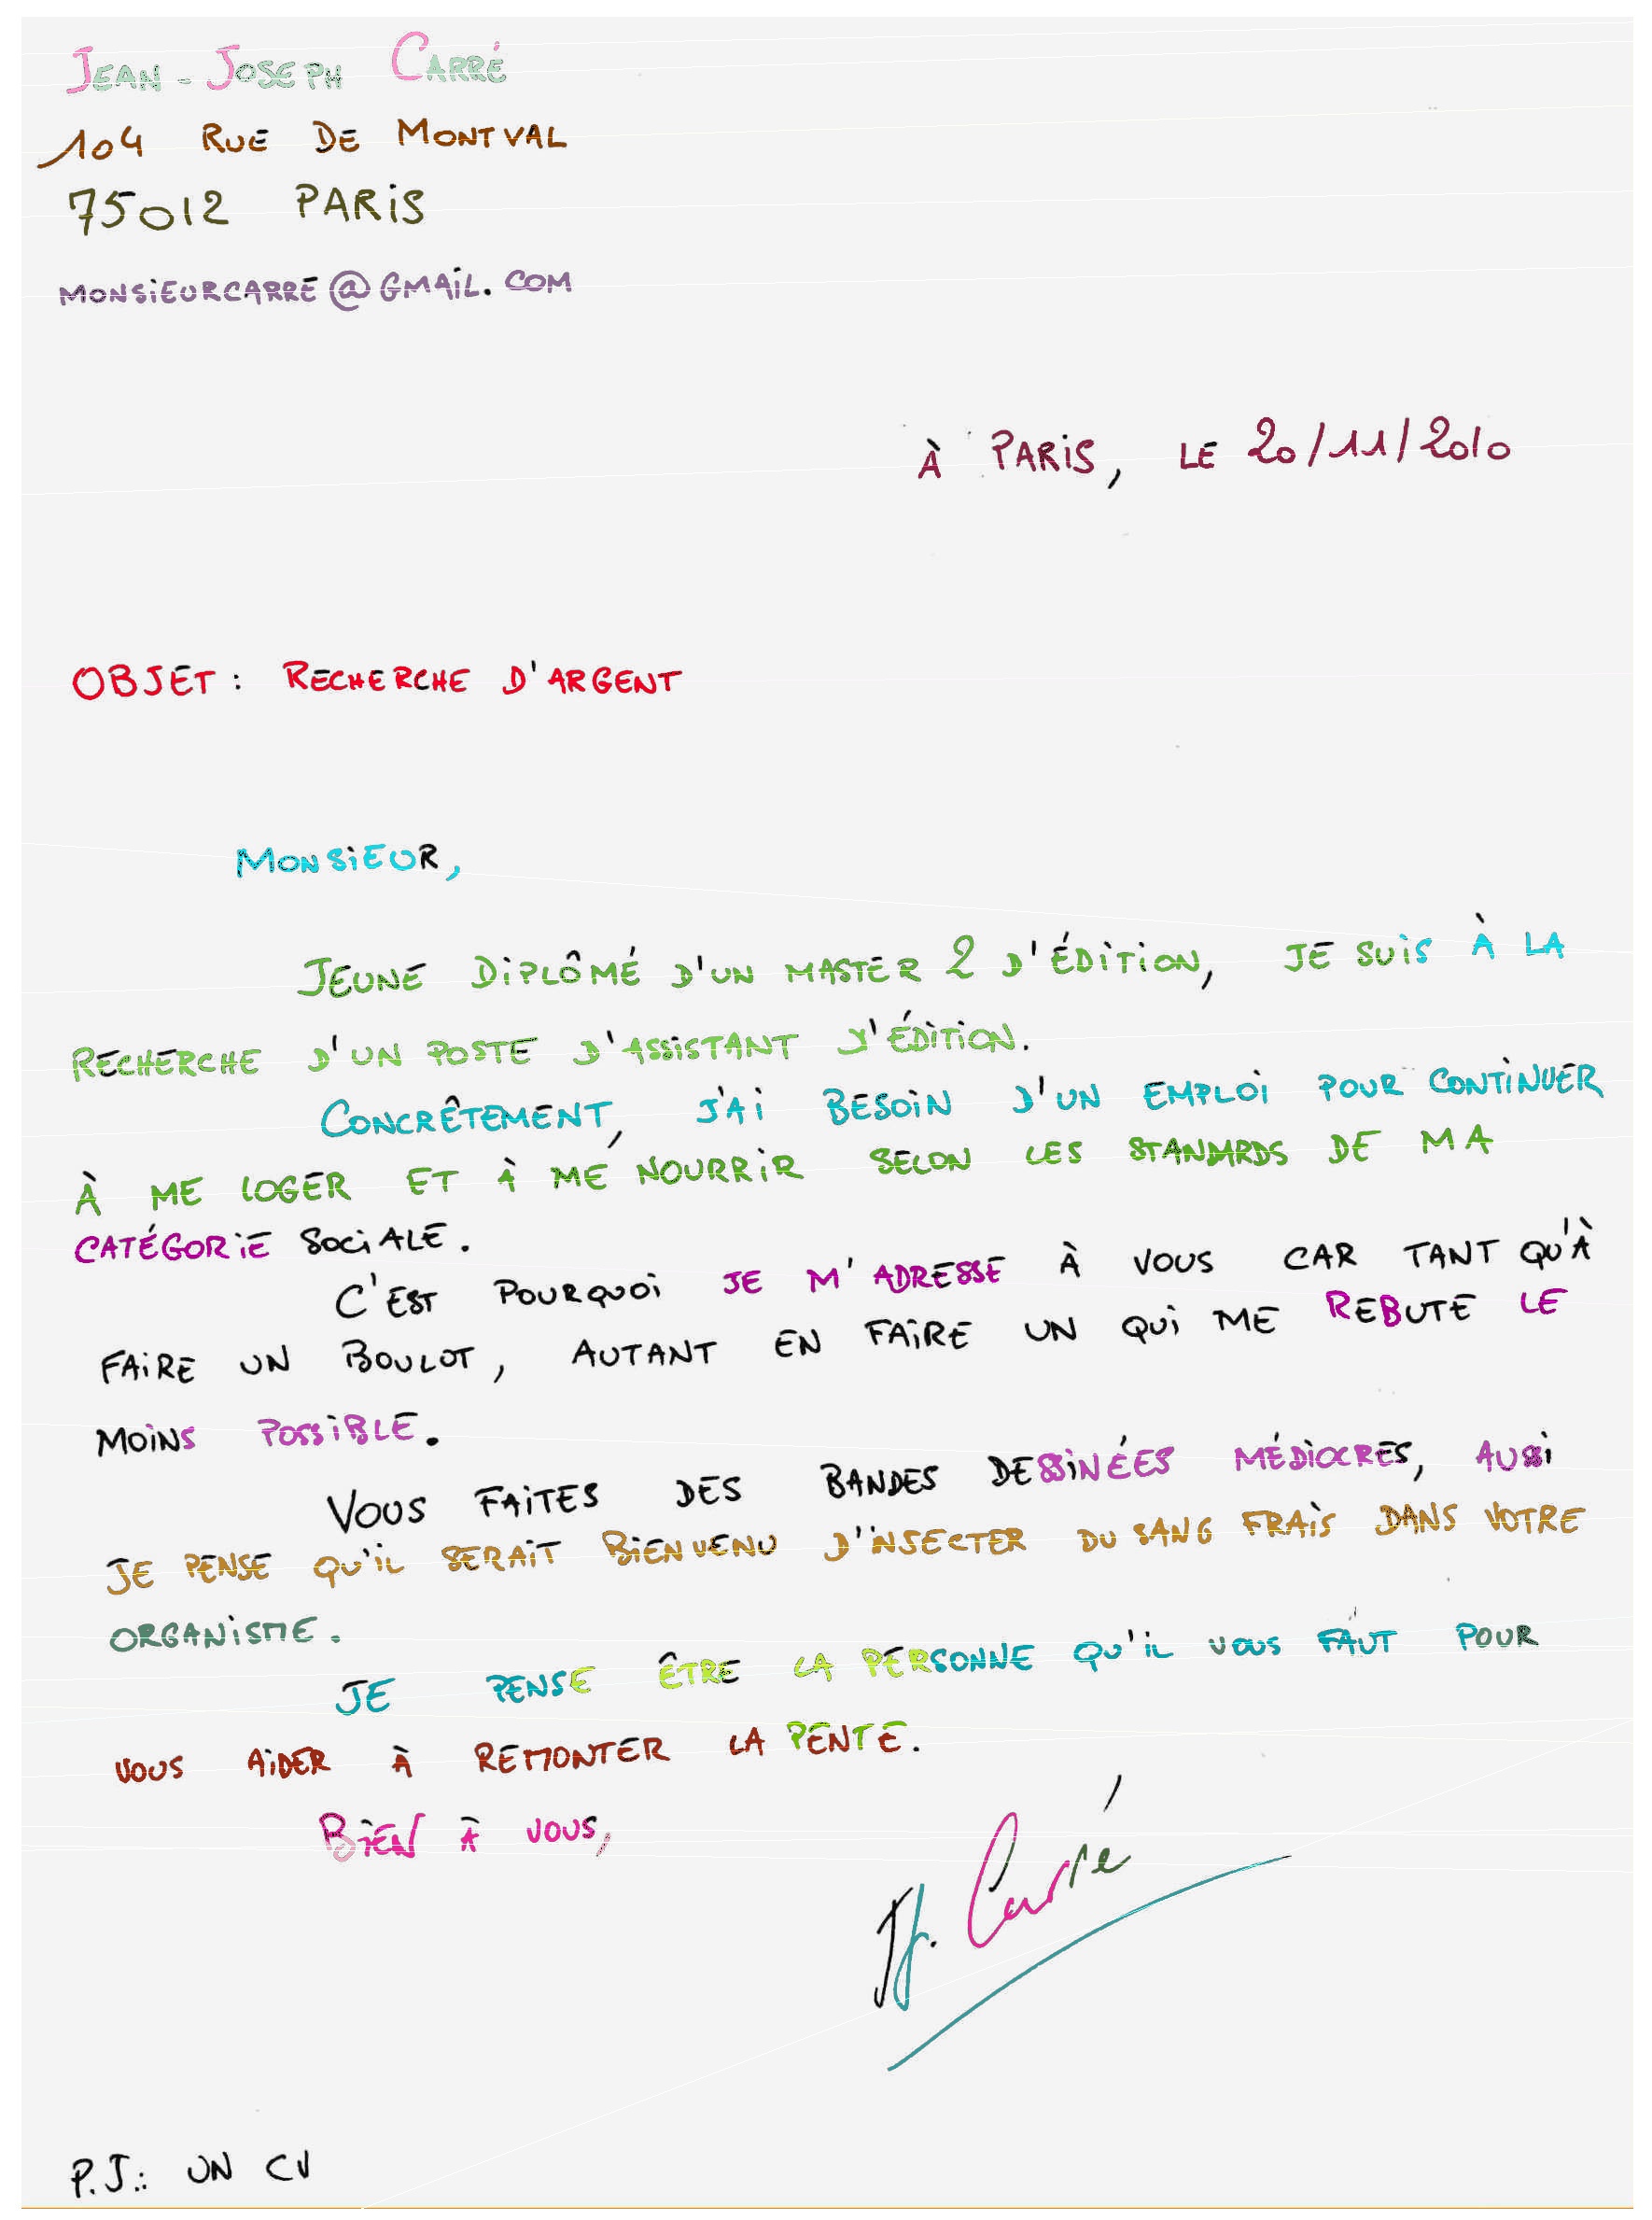 JEAN-JOSEPH CARRÉ
104 RUE DE MONTVAL
75012 PARiS
MONSiEURCARRE@GMAiL.COM
À PARiS, LE 20/11/2010
OBJET : RECHERCHE D'ARGENT
MONSiEUR,
JEUNE DiPLÔMÉ D'UN MASTER 2 D'ÉDiTiON, JE SUiS À LA
RECHERCHE D'UN POSTE D'ASSiSTANT D'ÉDiTiON.
CONCRÊTEMENT, J'Ai BESOiN D'UN EMPLOi POUR CONTiNUER
À ME LOGER ET À ME NOURRiR SELON LES STANDARDS DE MA
CATÉGORiE SOCiALE.
C'EST POURQUOi JE M'ADRESSE À VOUS CAR TANT QU'À
FAiRE UN BOULOT, AUTANT EN FAiRE UN QUi ME REBUTE LE
MOiNS POSSiBLE.
VOUS FAiTES DES BANDES DESSiNÉES MÉDiOCRES, AUSSi
JE PENSE QU'iL SERAiT BiENVENU D'iNSECTER DU SANG FRAiS DANS VOTRE
ORGANiSME.
JE PENSE ÊTRE LA PERSONNE QU'iL VOUS FAUT POUR
VOUS AiDER À REMONTER LA PENTE.
BiEN À VOUS,
JJ. Carré
P.J.: UN CV